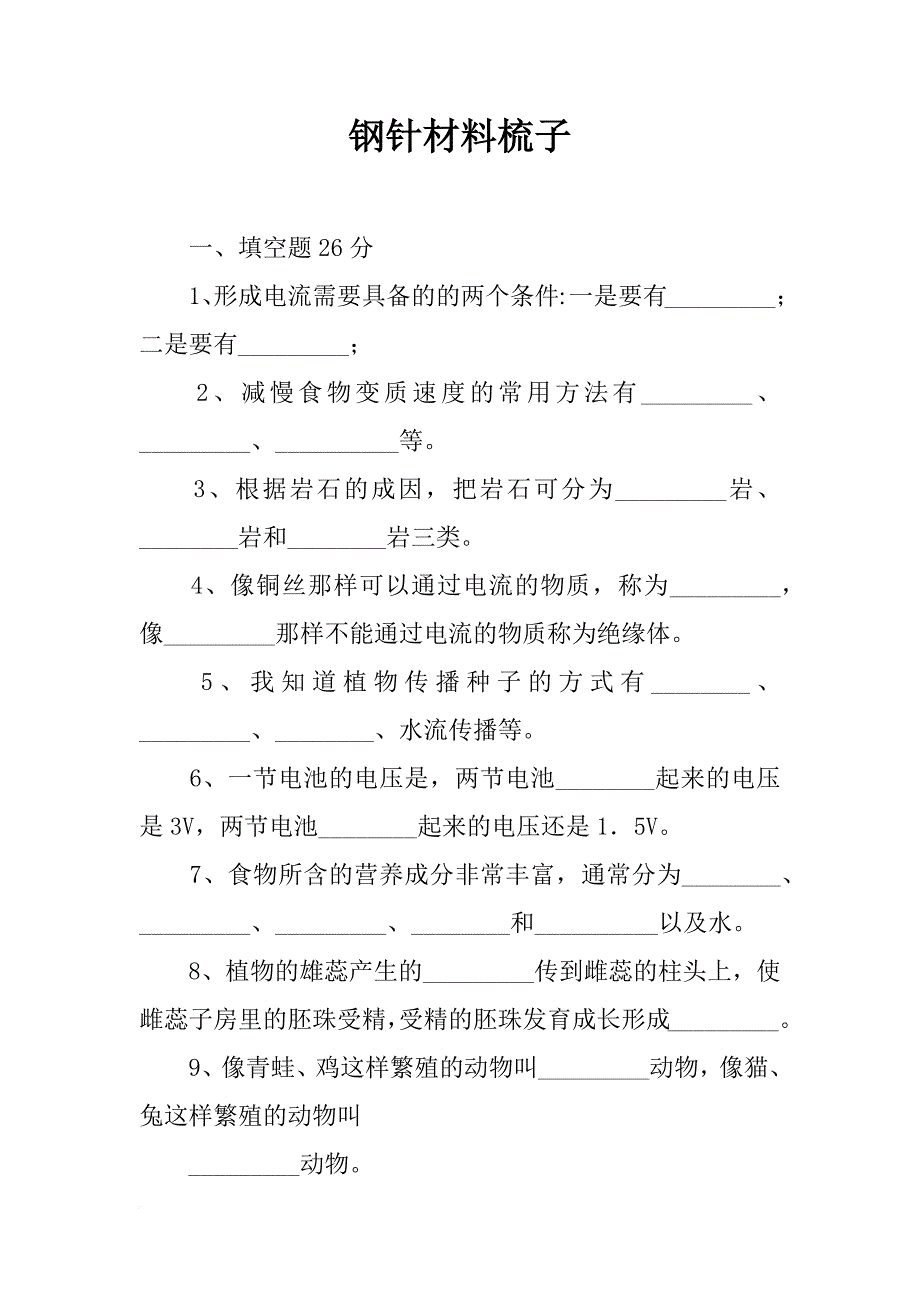 钢针材料梳子
一、填空题26分
1、形成电流需要具备的的两个条件:一是要有_________；
二是要有_________；
2、减慢食物变质速度的常用方法有_________、
_________、__________等。
3、根据岩石的成因，把岩石可分为_________岩、
________岩和________岩三类。
4、像铜丝那样可以通过电流的物质，称为_________，
像_________那样不能通过电流的物质称为绝缘体。
5、我知道植物传播种子的方式有________、
_________、________、水流传播等。
6、一节电池的电压是，两节电池________起来的电压
是3V，两节电池________起来的电压还是1．5V。
7、食物所含的营养成分非常丰富，通常分为________、
_________、_________、________和__________以及水。
8、植物的雄蕊产生的_________传到雌蕊的柱头上，使
雌蕊子房里的胚珠受精，受精的胚珠发育成长形成_________。
9、像青蛙、鸡这样繁殖的动物叫_________动物，像猫、
兔这样繁殖的动物叫
_________动物。